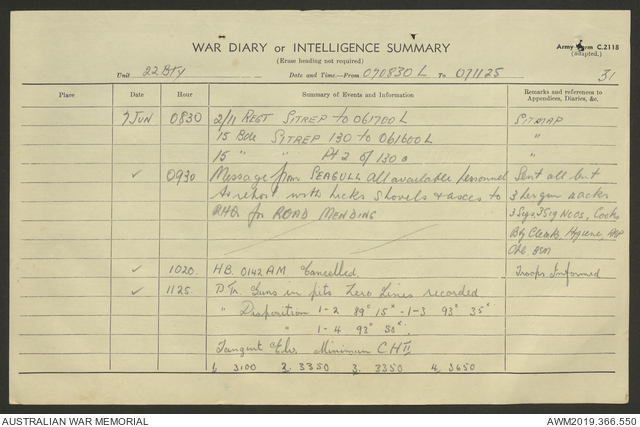 WAR DIARY or INTELLIGENCE SUMMARY
(Erase heading not required)
Army Form C.2118
(adapted.)
Unit 22 Bty Date and Time.—From 070830 L To 071125
31
Place Date Hour Summary of Events and Information Remarks and references to Appendices, Diaries, &c.
7 JUN 0830 2/11 REGT SITREP to 061700 L SITMAP
15 Bde SITREP 130 to 061600 L "
15 " " Pt 2 of 130 "
✓ 0930 Message from SEAGULL All available personnel Sent all but
to report with Picks Shovels & axes to 3 per gun
RHQ for ROAD MENDING 3 Sigs, 3 Sig NCOs, Cooks
Bty Clerk, Hygiene, RAP
BSM
✓ 1020 HB. 0142 AM Cancelled. Troops Informed
✓ 1125 D Tp. Guns in pits Zero Lines recorded
" Disposition 1-2 89° 15' - 1-3 93° 35'
" 1-4 92° 50'.
Tangent Elev. Minimum CH II
1. 3100 2. 3350 3. 3350 4. 3650
AUSTRALIAN WAR MEMORIAL
AWM2019.366.550